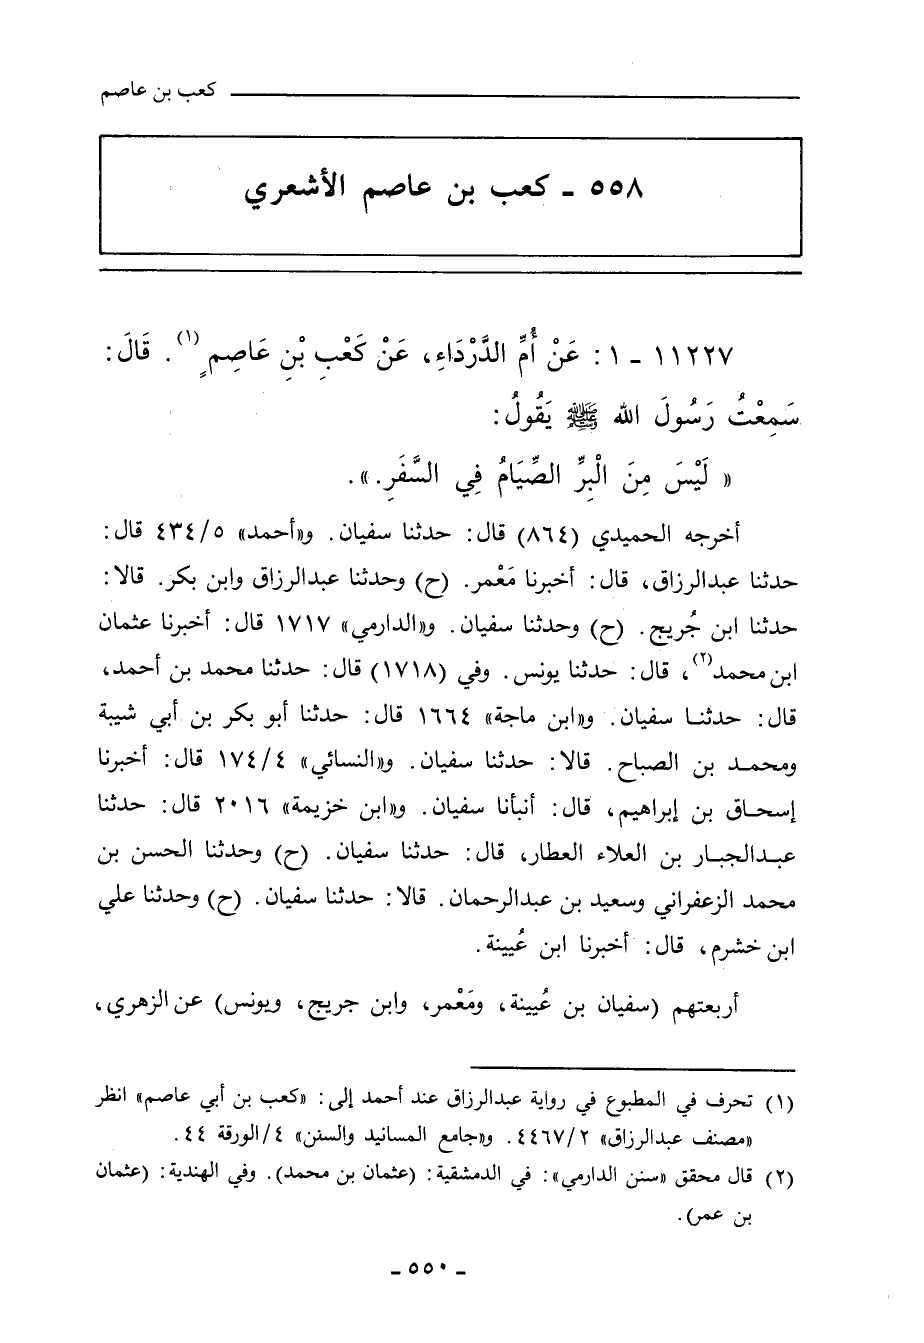 كعب بن عاصم
٥٥٨ ـ كعب بن عاصم الأشعري
١١٢٢٧ ـ ١ : عَنْ أُمِّ الدَّرْدَاءِ، عَنْ كَعْبِ بْنِ عَاصِمٍ (١). قَالَ :
سَمِعْتُ رَسُولَ الله ﷺ يَقُولُ :
« لَيْسَ مِنَ الْبِرِّ الصِّيَامُ فِي السَّفَرِ. ».
أخرجه الحميدي (٨٦٤) قال : حدثنا سفيان. و«أحمد» ٥/ ٤٣٤ قال :
حدثنا عبدالرزاق، قال : أخبرنا مَعْمر. (ح) وحدثنا عبدالرزاق وابن بكر. قالا :
حدثنا ابن جُريج. (ح) وحدثنا سفيان. و«الدارمي» ١٧١٧ قال : أخبرنا عثمان
ابن محمد(٢)، قال : حدثنا يونس. وفي (١٧١٨) قال : حدثنا محمد بن أحمد،
قال : حدثنا سفيان. و«ابن ماجة» ١٦٦٤ قال : حدثنا أبو بكر بن أبي شيبة
ومحمد بن الصباح. قالا : حدثنا سفيان. و«النسائي» ٤/ ١٧٤ قال : أخبرنا
إسحاق بن إبراهيم، قال : أنبأنا سفيان. و«ابن خزيمة» ٢٠١٦ قال : حدثنا
عبدالجبار بن العلاء العطار، قال : حدثنا سفيان. (ح) وحدثنا الحسن بن
محمد الزعفراني وسعيد بن عبدالرحمان. قالا : حدثنا سفيان. (ح) وحدثنا علي
ابن خشرم، قال : أخبرنا ابن عُيينة.
أربعتهم (سفيان بن عُيينة، ومَعْمر، وابن جريج، ويونس) عن الزهري،
(١) تحرف في المطبوع في رواية عبدالرزاق عند أحمد إلى : «كعب بن أبي عاصم» انظر
«مصنف عبدالرزاق» ٢/ ٤٤٦٧. و«جامع المسانيد والسنن» ٤/ الورقة ٤٤.
(٢) قال محقق «سنن الدارمي» : في الدمشقية : (عثمان بن محمد). وفي الهندية : (عثمان
بن عمر).
ـ ٥٥٠ ـ